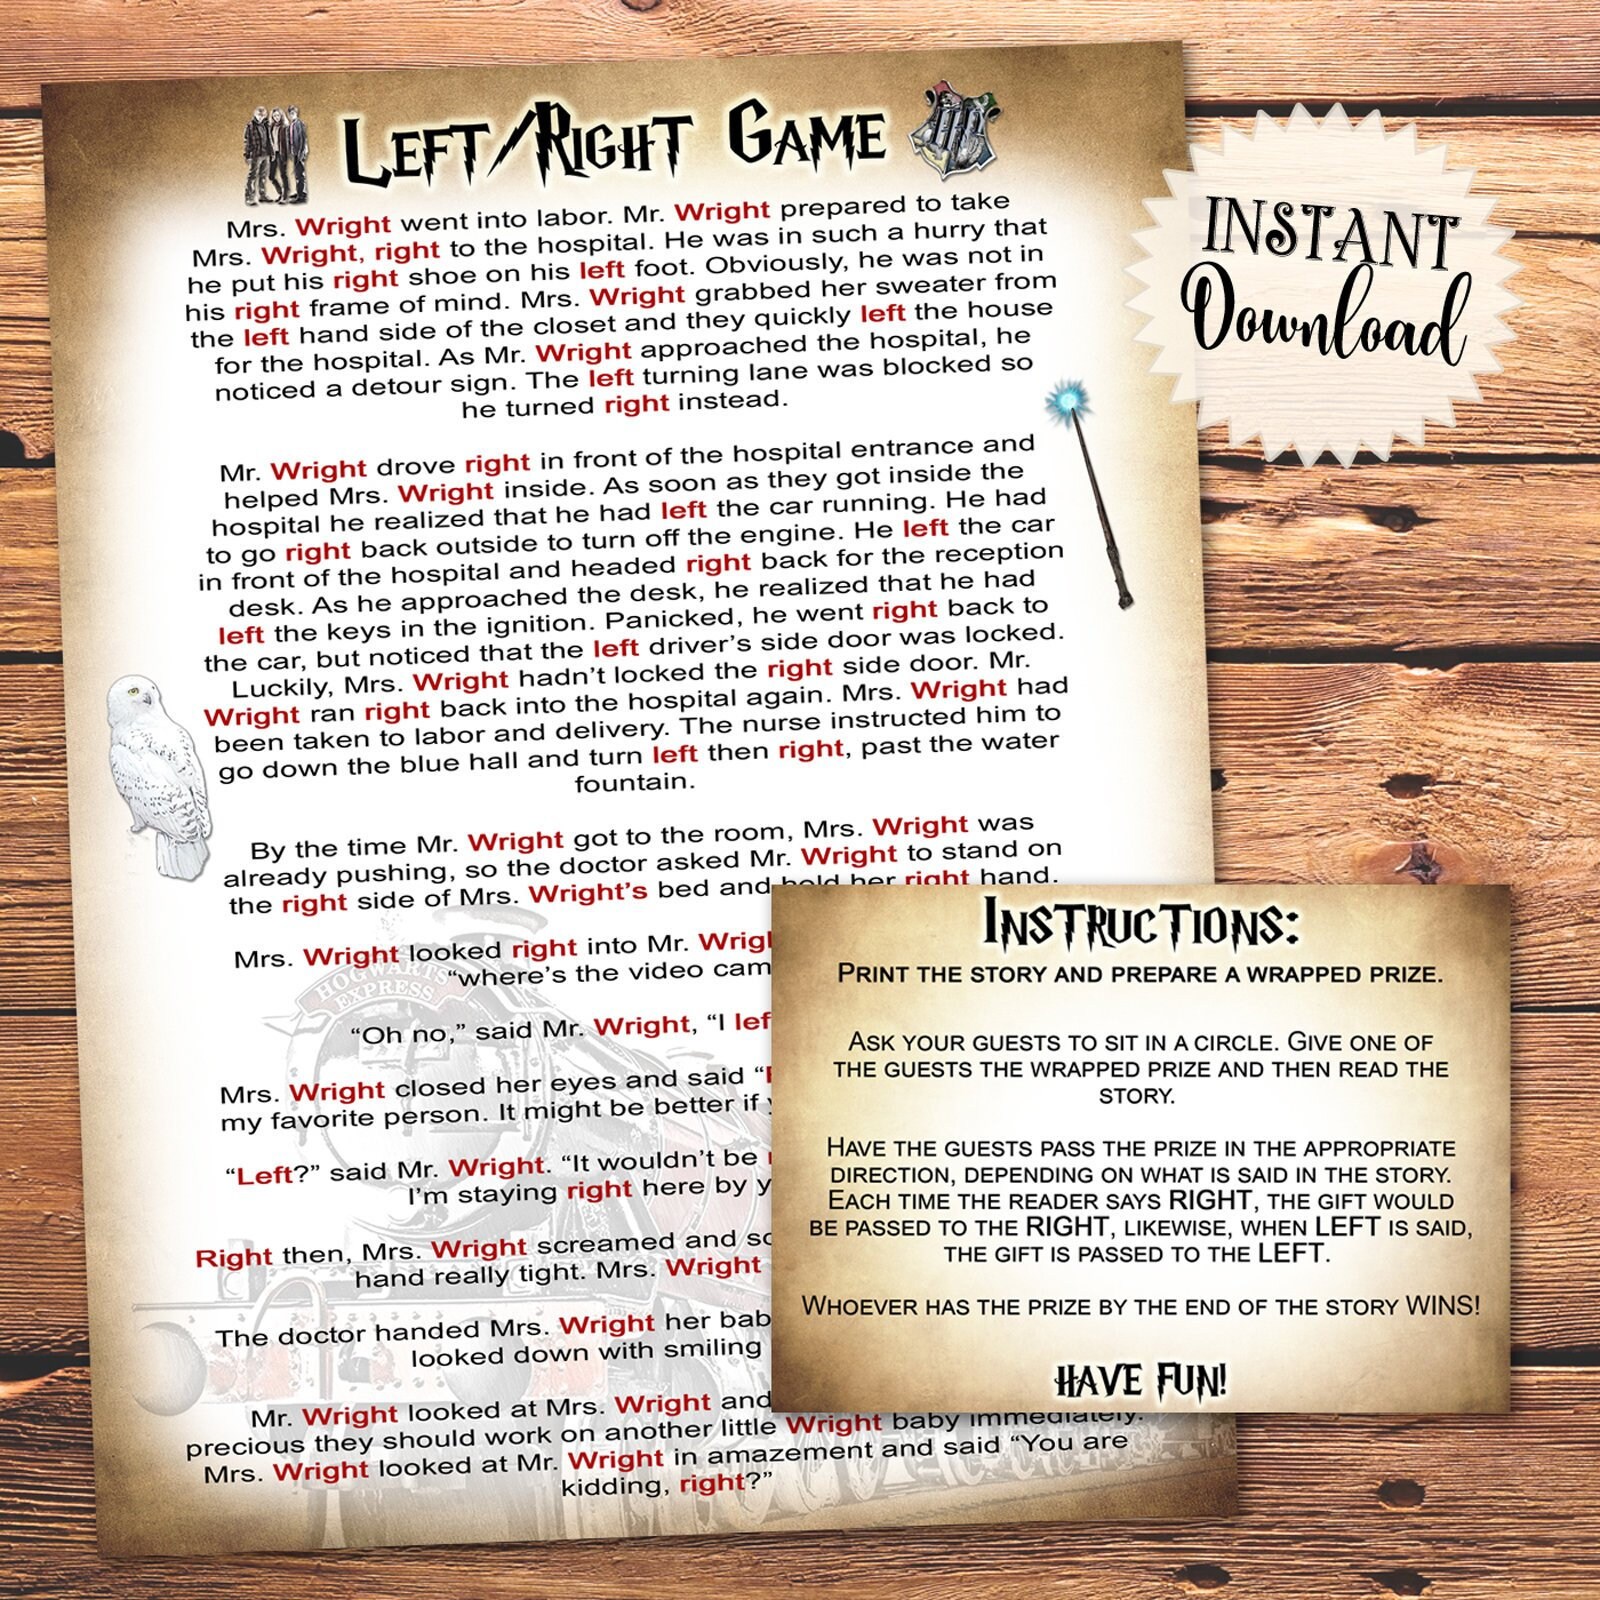 LEFT/RIGHT GAME
Mrs. Wright went into labor. Mr. Wright prepared to take
Mrs. Wright, right to the hospital. He was in such a hurry that
he put his right shoe on his left foot. Obviously, he was not in
his right frame of mind. Mrs. Wright grabbed her sweater from
the left hand side of the closet and they quickly left the house
for the hospital. As Mr. Wright approached the hospital, he
noticed a detour sign. The left turning lane was blocked so
he turned right instead.
Mr. Wright drove right in front of the hospital entrance and
helped Mrs. Wright inside. As soon as they got inside the
hospital he realized that he had left the car running. He had
to go right back outside to turn off the engine. He left the car
in front of the hospital and headed right back for the reception
desk. As he approached the desk, he realized that he had
left the keys in the ignition. Panicked, he went right back to
the car, but noticed that the left driver's side door was locked.
Luckily, Mrs. Wright hadn't locked the right side door. Mr.
Wright ran right back into the hospital again. Mrs. Wright had
been taken to labor and delivery. The nurse instructed him to
go down the blue hall and turn left then right, past the water
fountain.
By the time Mr. Wright got to the room, Mrs. Wright was
already pushing, so the doctor asked Mr. Wright to stand on
the right side of Mrs. Wright's bed and hold her right hand.
Mrs. Wright looked right into Mr.
“where's the video
“Oh no,” said Mr. Wright, “I
Mrs. Wright closed her eyes and said
my favorite person. It might be better if
“Left?” said Mr. Wright. “It wouldn't be
I'm staying right here by
Right then, Mrs. Wright screamed and
hand really tight. Mrs. Wright
The doctor handed Mrs. Wright her
looked down with smiling
Mr. Wright looked at Mrs. Wright and
precious they should work on another little Wright baby immediately.
Mrs. Wright looked at Mr. Wright in amazement and said “You are
kidding, right?”
HOGWARTS
EXPRESS
INSTANT
Download
INSTRUCTIONS:
PRINT THE STORY AND PREPARE A WRAPPED PRIZE.
ASK YOUR GUESTS TO SIT IN A CIRCLE. GIVE ONE OF
THE GUESTS THE WRAPPED PRIZE AND THEN READ THE
STORY.
HAVE THE GUESTS PASS THE PRIZE IN THE APPROPRIATE
DIRECTION, DEPENDING ON WHAT IS SAID IN THE STORY.
EACH TIME THE READER SAYS RIGHT, THE GIFT WOULD
BE PASSED TO THE RIGHT, LIKEWISE, WHEN LEFT IS SAID,
THE GIFT IS PASSED TO THE LEFT.
WHOEVER HAS THE PRIZE BY THE END OF THE STORY WINS!
HAVE FUN!